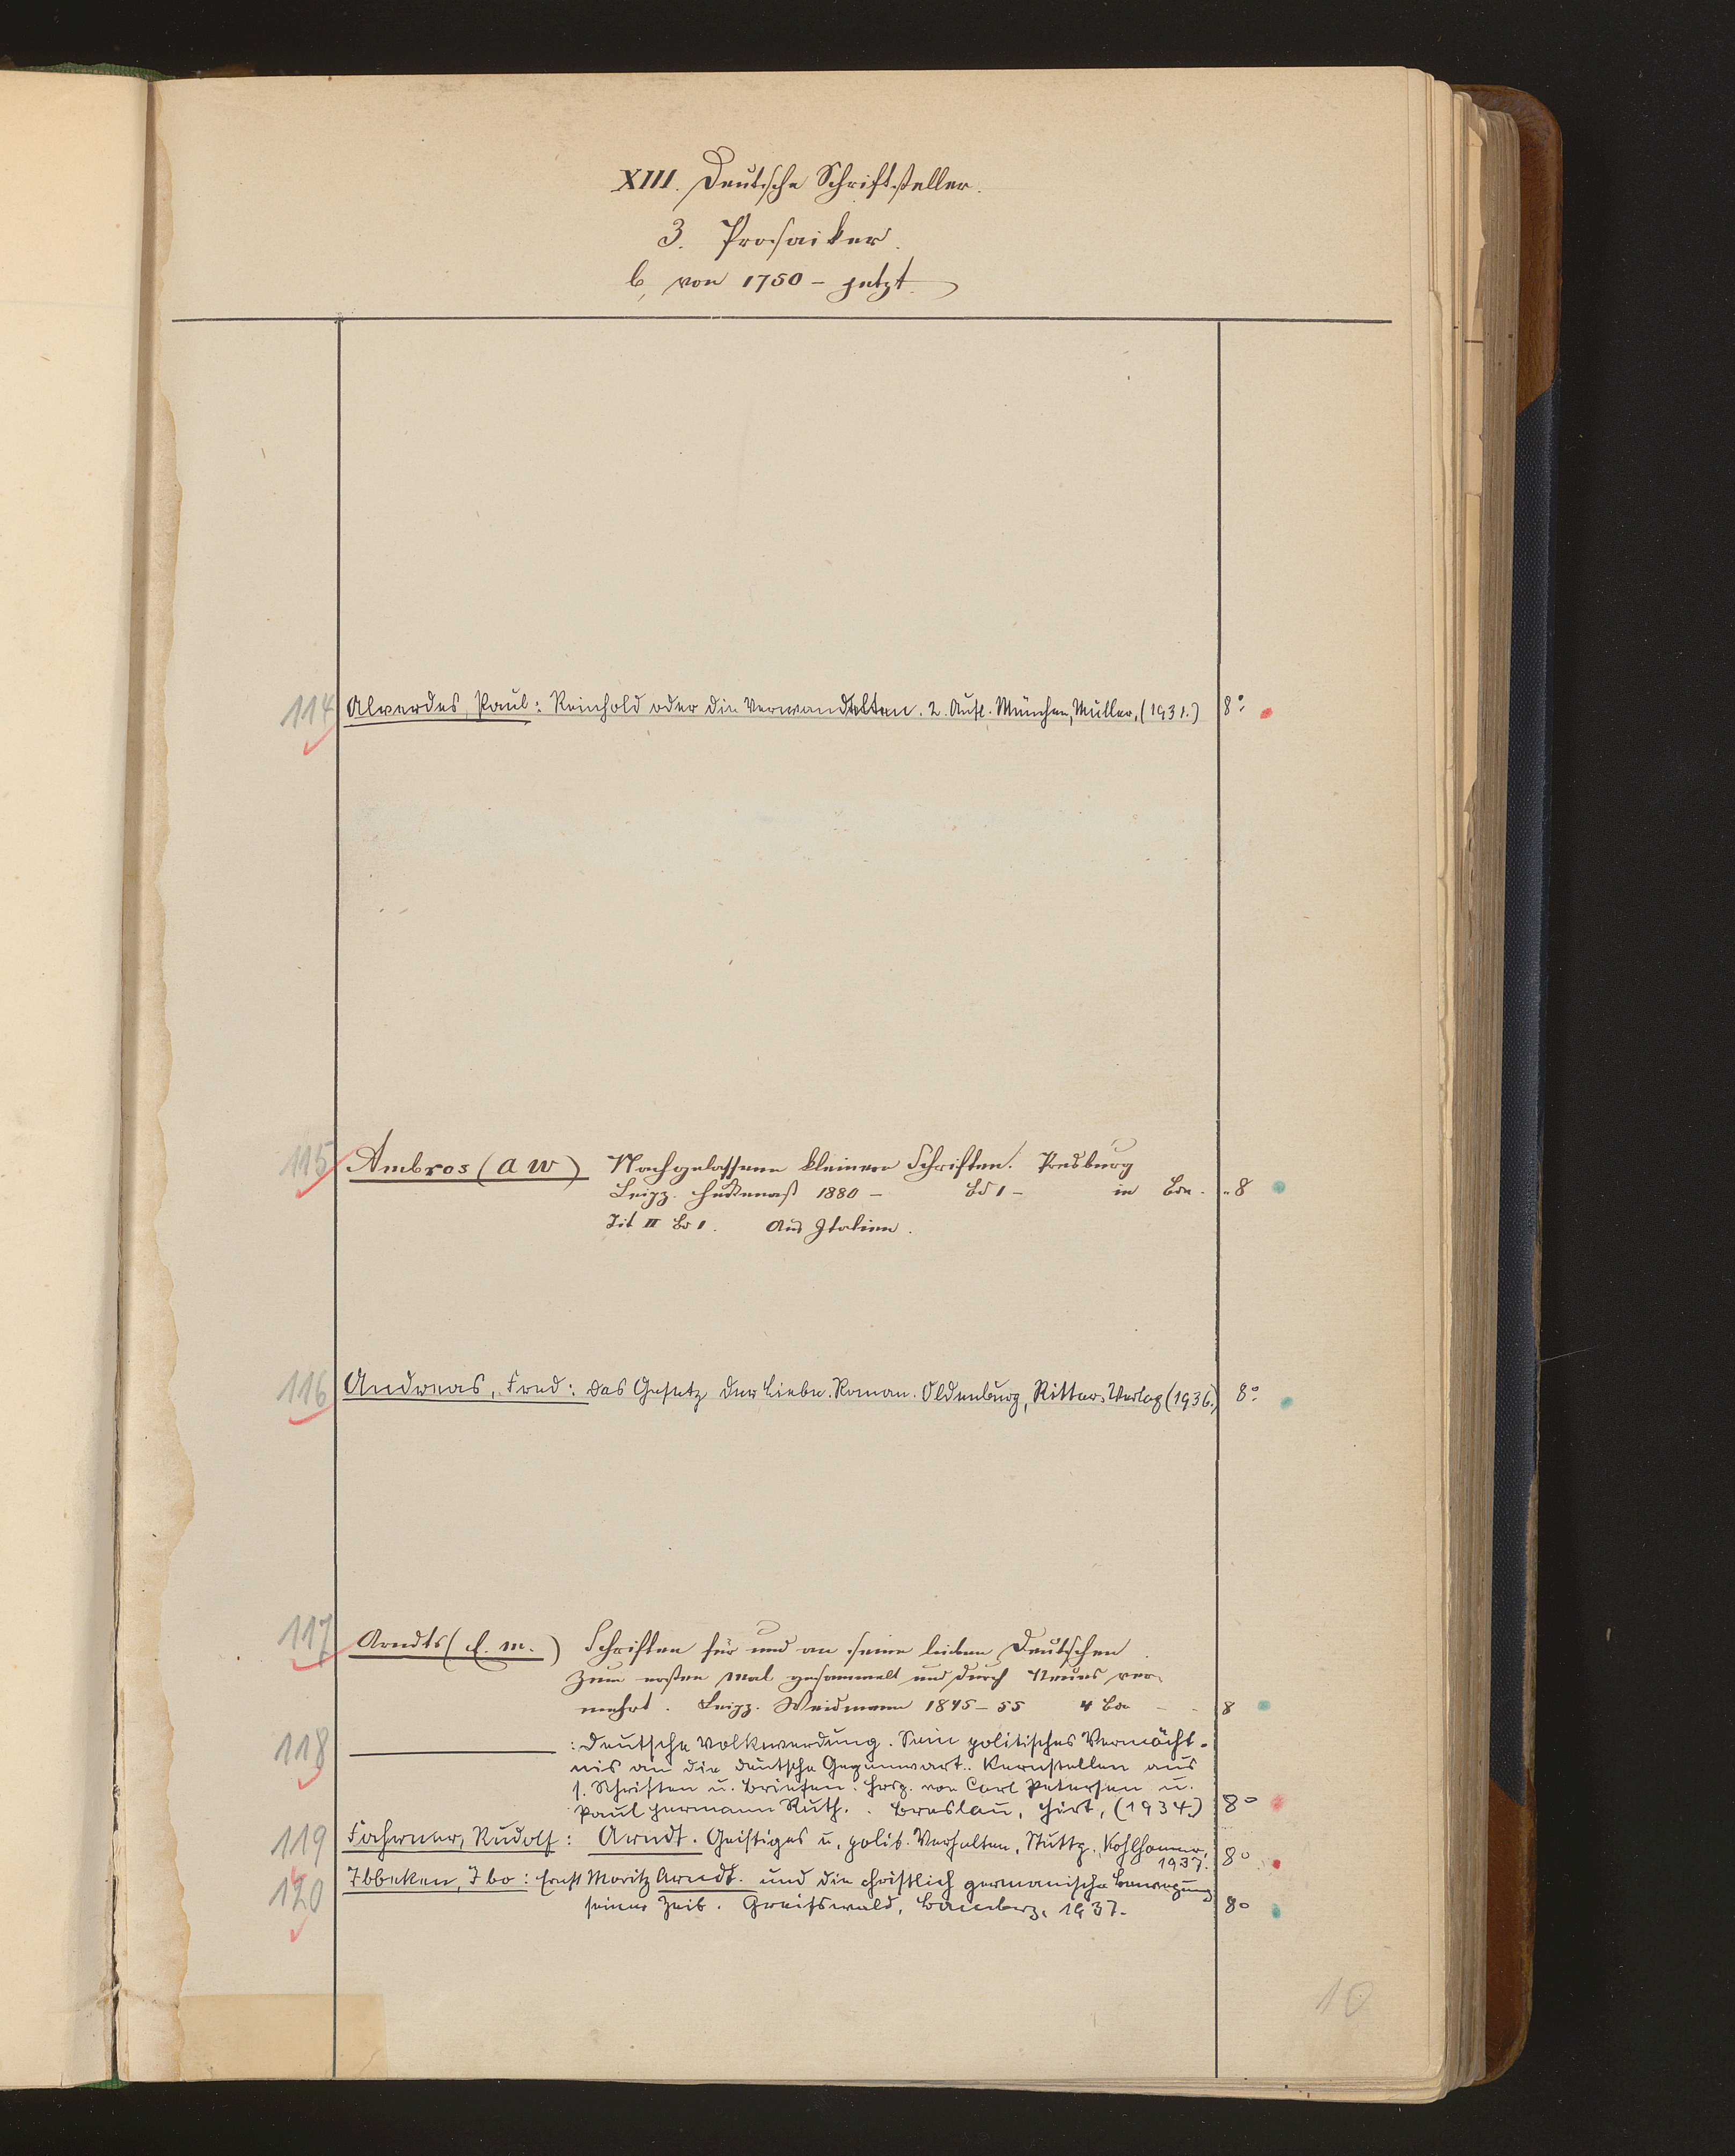 XIII. Deutsche Schriftsteller.
3. Prosaiker.
b, von 1750 – jetzt.
114 Alverdes, Paul: Reinhold oder die Verwandelten. 2. Aufl. München, Müller, (1931.) 8°
115 Ambros (A W) Nachgelassene kleinere Schriften. Presburg
Leipz. Heckenast 1880 – Bd 1 – in Bdn. „ 8
Tit II Bd 1. Aus Italien.
116 Andreas, Fred: Das Gesetz der Liebe. Roman. Oldenburg, Ritter-Verlag (1936.) 8°
117 Arndts (E. M.) Schriften für und an seine lieben Deutschen.
Zum ersten Mal gesammelt und durch Neues ver-
mehrt. Leipz. Weidmann 1845–55 4 Bde - - 8
118 : Deutsche Volkwerdung. Sein politisches Vermächt-
nis an die deutsche Gegenwart. Kernstellen aus
s. Schriften u. Briefen. Hrsg. von Carl Petersen u.
Paul Hermann Ruth. Breslau, Hirt, (1934.) 8°
119 Fahrner, Rudolf: Arndt. Geistiges u. polit. Verhalten. Stuttg. Kohlhammer,
1937. 8°
120 Ibbeken, Ibo: Ernst Moritz Arndt. und die christlich germanische Bewegung
seiner Zeit. Greifswald, Bamberg, 1937. 8°
10